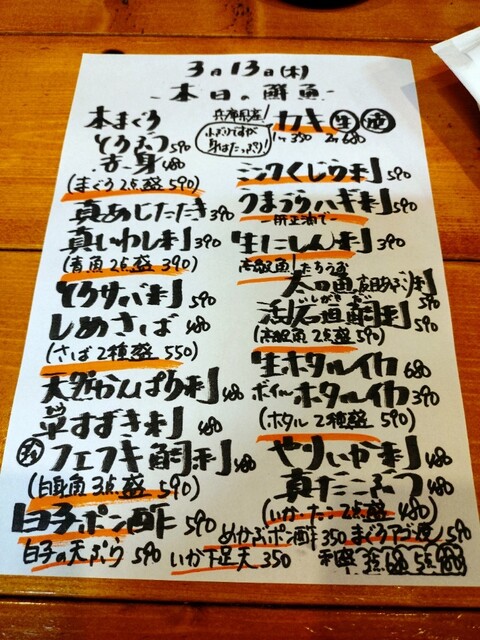 3月13日(木)
本日の鮮魚
本まぐろ
とろぶつ 590
赤身 480
(まぐろ2点盛 590)
真あじたたき 390
真いわし刺 390
(青魚2点盛 390)
とろサバ刺 590
しめさば 480
(さば2種盛 550)
天然かんぱち刺 480
岸すずき刺 480
フエフキ鯛刺 480
(白身魚3点盛 590)
白子ポン酢 590
白子の天ぷら 590
兵庫県産!
小ぶりですが
身はたっぷり!
カキ 生
1ヶ 350 2ヶ 680
ミンククジラ刺 590
うまづらハギ刺 590
一肝正油で一
生にしん刺 390
高級魚!
太刀魚 刺 590
いしがきだい
活石垣鯛刺 590
(高級魚2点盛 590)
生ホタルイカ 680
ボイルホタルイカ 390
(ホタル2種盛 590)
やりいか刺 480
真だこぶつ 480
(いか・たこ2点盛 480)
めかぶポン酢 350
いか下足天 350
まぐろアゴ 590